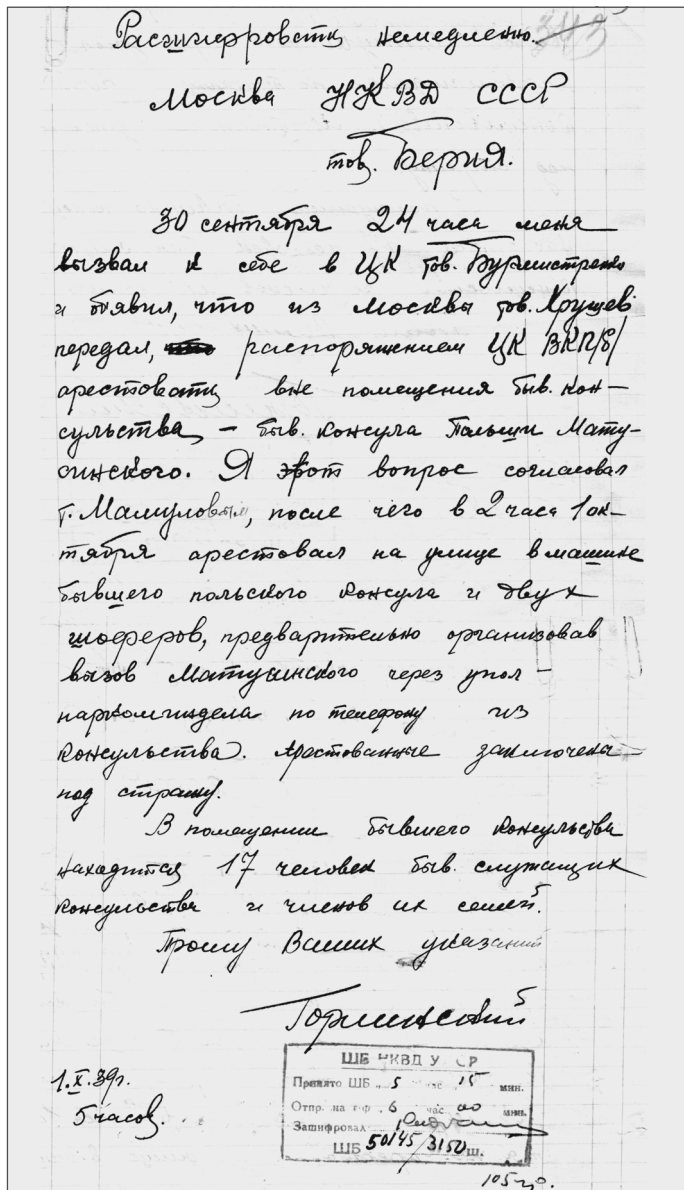 Расшифровать немедленно.
Москва НКВД СССР
тов. Берия.
30 сентября 24 часа меня
вызвал к себе в ЦК тов. Бурмистренко
и об'явил, что из Москвы тов. Хрущев
передал, распоряжением ЦК ВКП/б/
арестовать вне помещения быв. кон-
сульства, – быв. консула Польши Мату-
синского. Я этот вопрос согласовал
т. Мамуловым, после чего в 2 часа 1 ок-
тября арестовал на улице в машине
бывшего польского консула и двух
шоферов, предварительно организовав
вызов Матусинского через упол-
наркоминдела по телефону из
консульства. Арестованные заключены
под стражу.
В помещении бывшего консульства
находится 17 человек быв. служащих
консульства и членов их семей.
Прошу Ваших указаний
Горлинский
1.X.39г.
5 часов.
ШБ НКВД У СР
Принято ШБ 5 час 15 мин.
Отпр. на 6 час 00 мин.
Зашифровал
ШБ 50145/3150 ш.